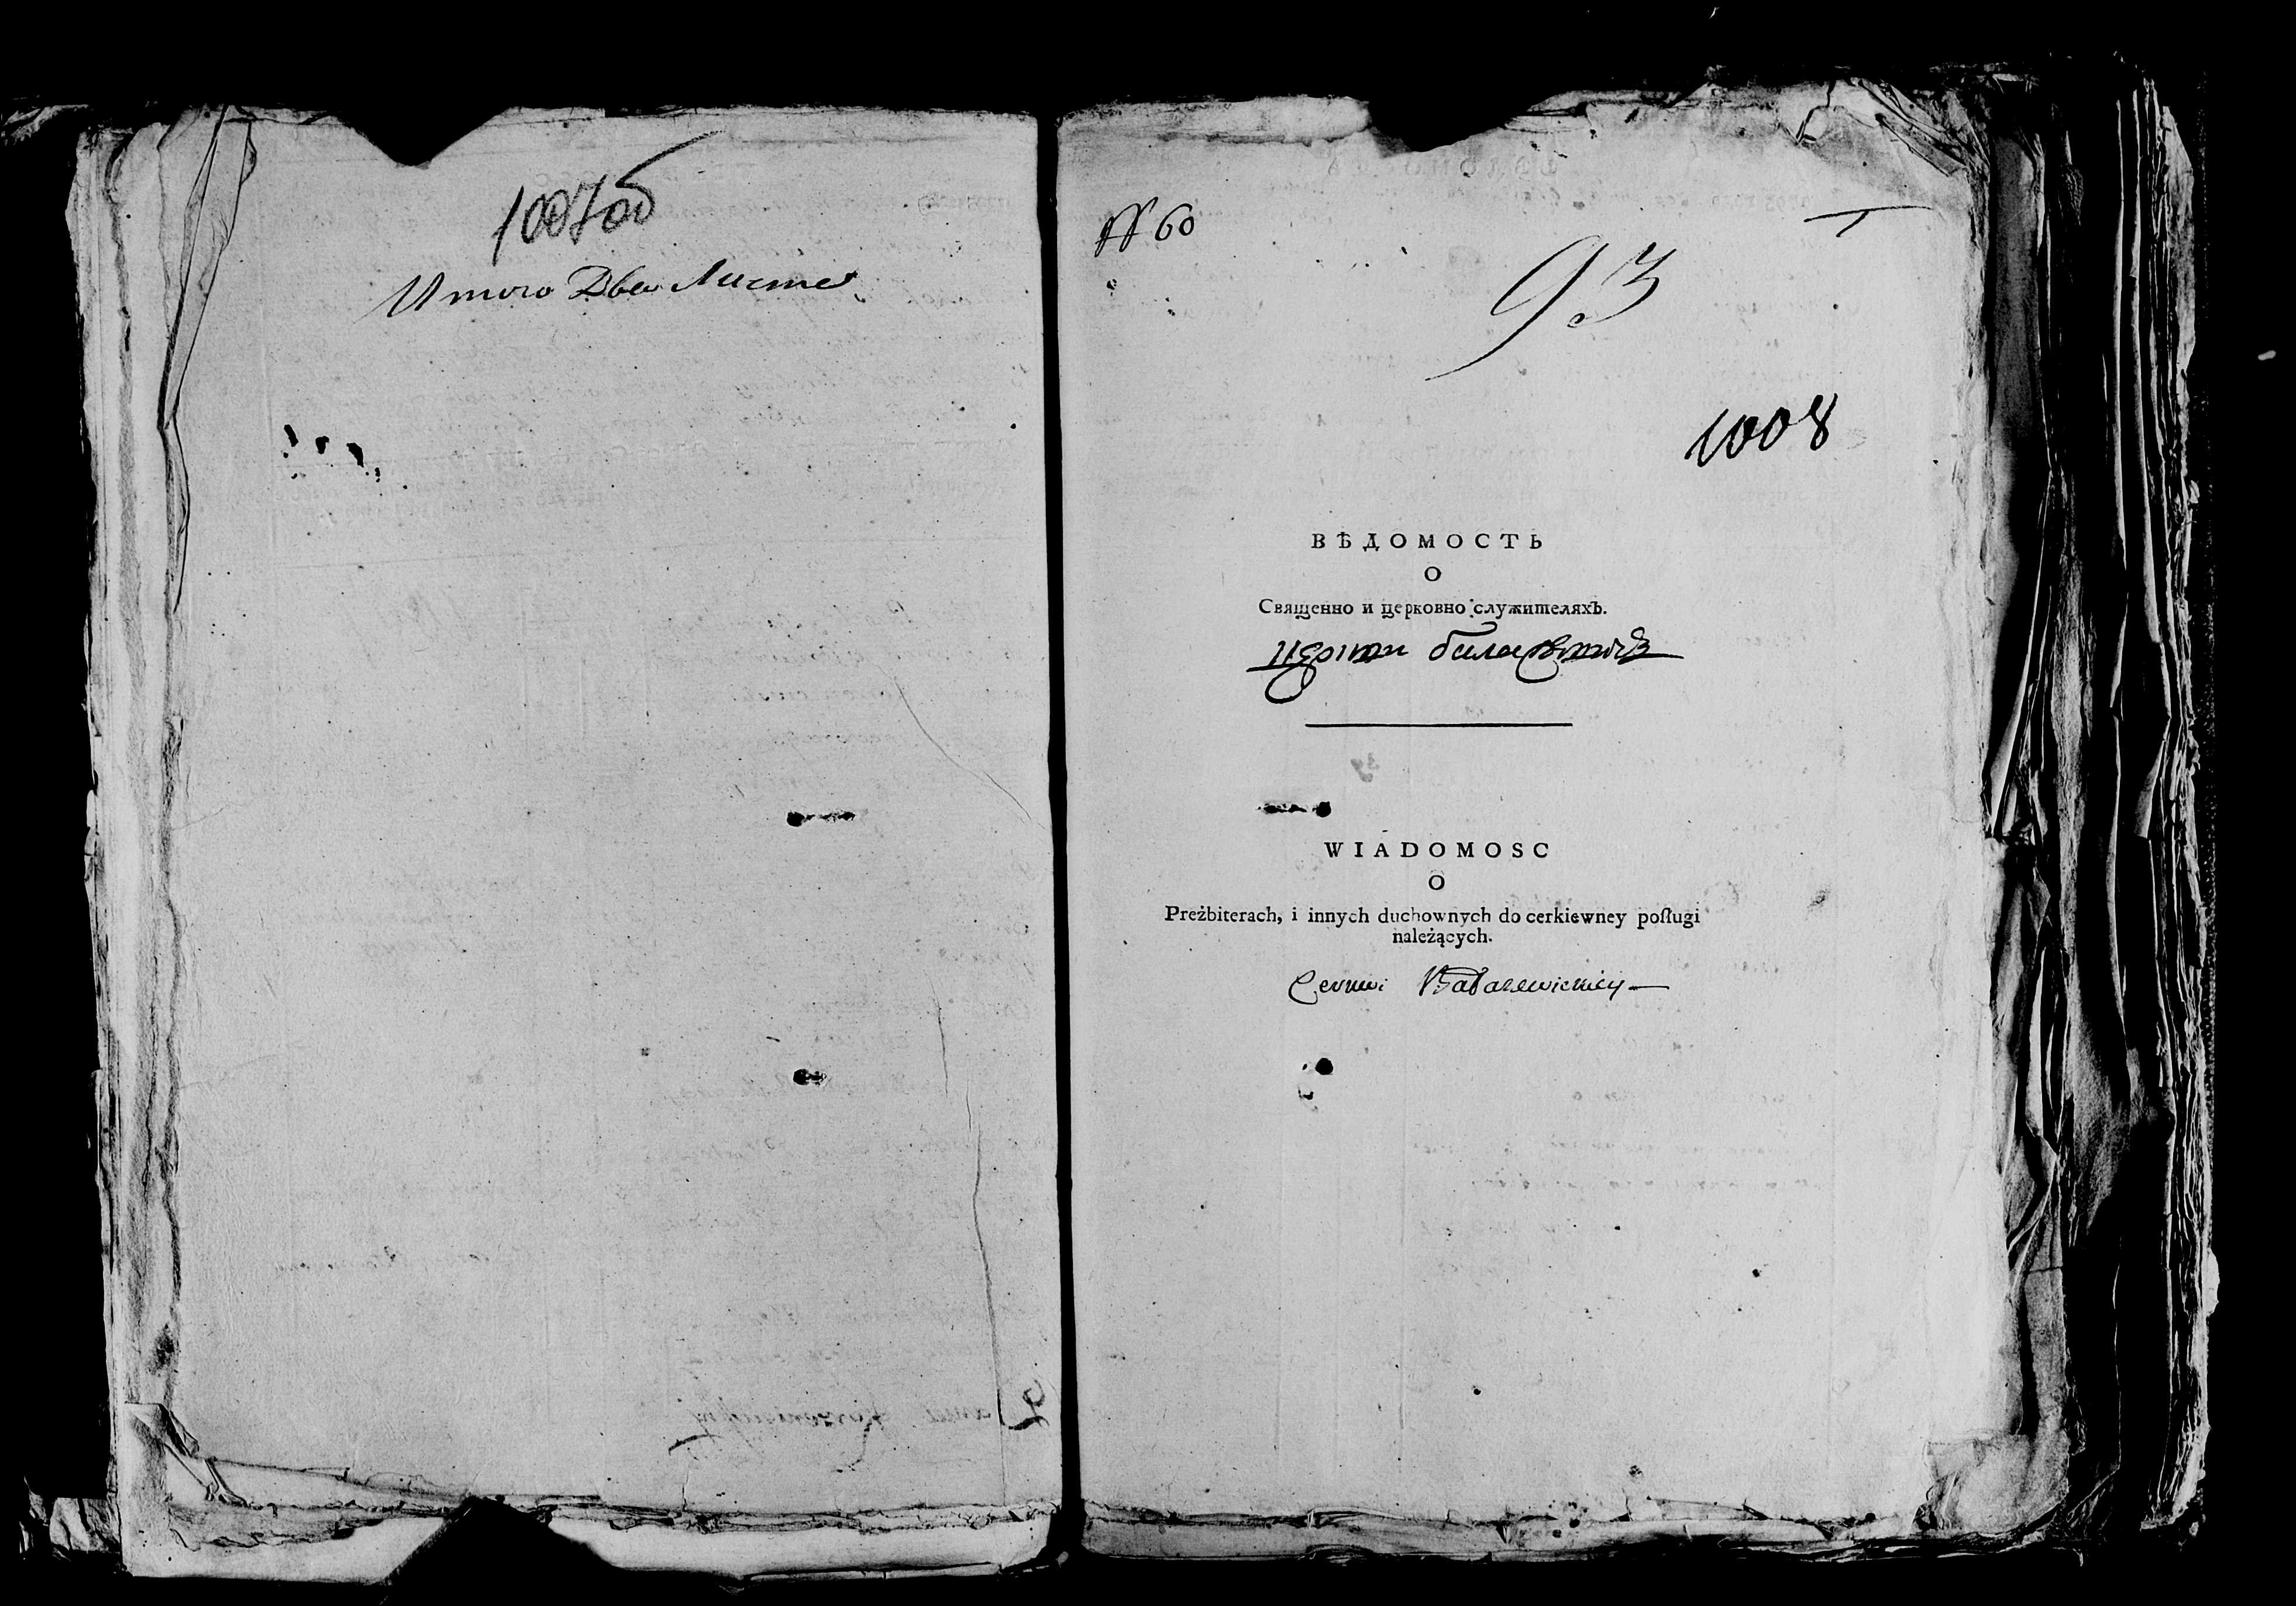 1007об
Итого Два Листа
№ 60
93
1008
ВѢДОМОСТЬ
О
Священно и церковно служителяхъ.
WIADOMOSC
O
Preżbiterach, i innych duchownych do cerkiewney posługi
należących.
Cerkwi